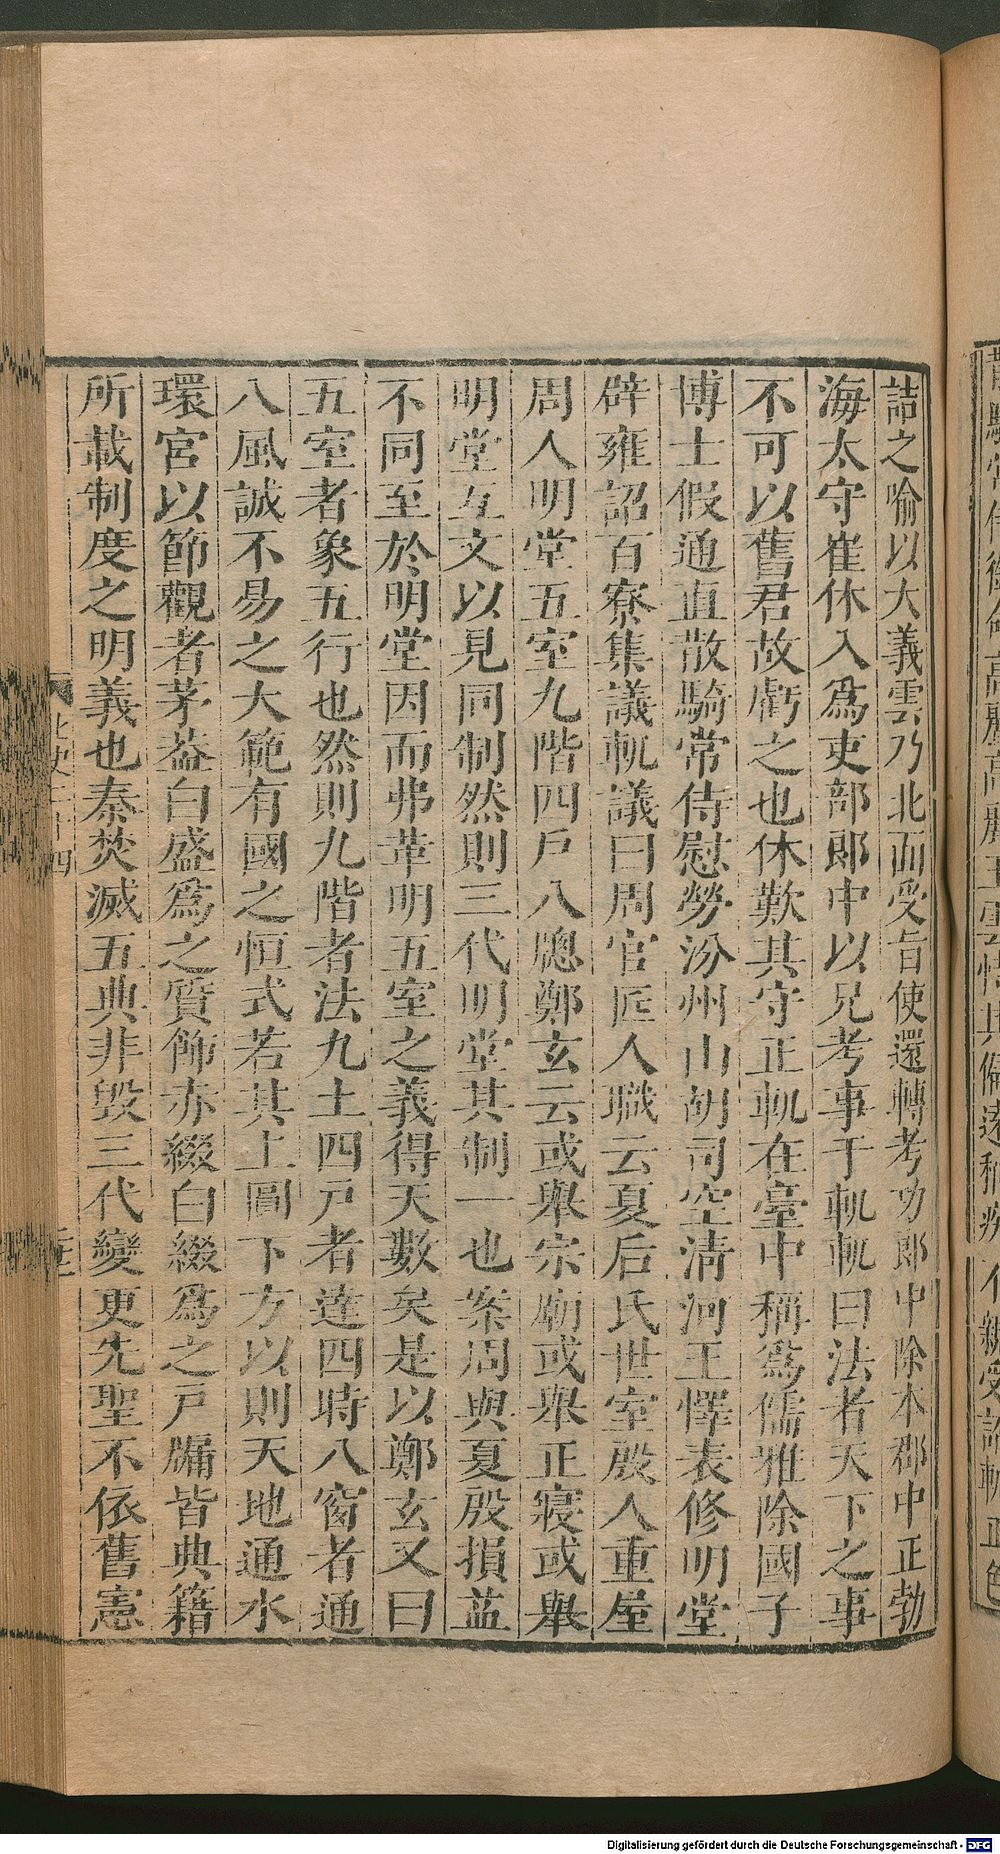 詰之喻以大義雲乃北面受旨使還轉考功郎中除本郡中正勃
海太守崔休入爲吏部郎中以兄考事于軌軌曰法者天下之事
不可以舊君故虧之也休歎其守正軌在臺中稱爲儒雅除國子
博士假通直散騎常侍慰勞汾州山胡司空清河王懌表修明堂
辟雍詔百寮集議軌議曰周官匠人職云夏后氏世室殷人重屋
周人明堂五室九階四戶八牕鄭玄云或舉宗廟或舉正寢或舉
明堂互文以見同制然則三代明堂其制一也案周與夏殷損益
不同至於明堂因而弗革明五室之義得天數矣是以鄭玄又曰
五室者象五行也然則九階者法九土四戶者達四時八窗者通
八風誠不易之大範有國之恒式若其上圓下方以則天地通水
環宮以節觀者茅葢白盛爲之質飾赤綴白綴爲之戶牖皆典籍
所載制度之明義也秦焚滅五典非毀三代變更先聖不依舊憲
Digitalisierung gefördert durch die Deutsche Forschungsgemeinschaft - DFG